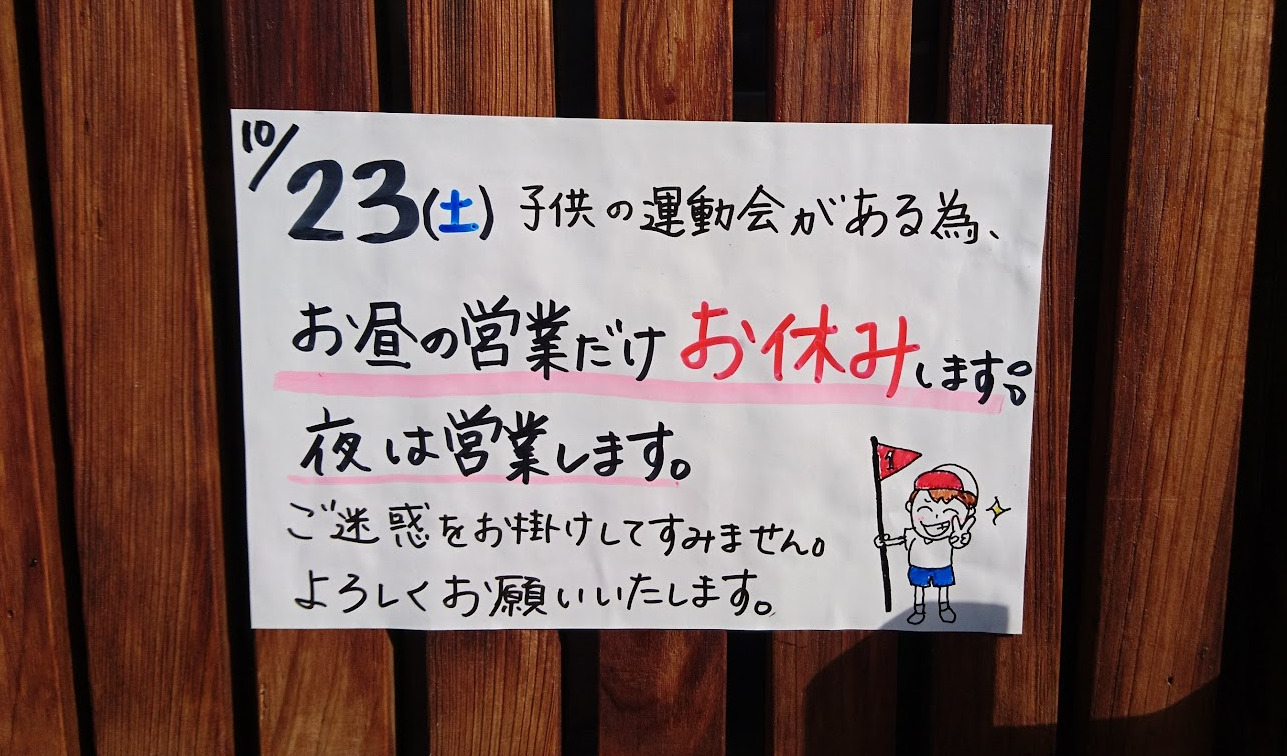 10/23(土) 子供の運動会がある為、
お昼の営業だけお休みします。
夜は営業します。
ご迷惑をお掛けしてすみません。
よろしくお願いいたします。
1